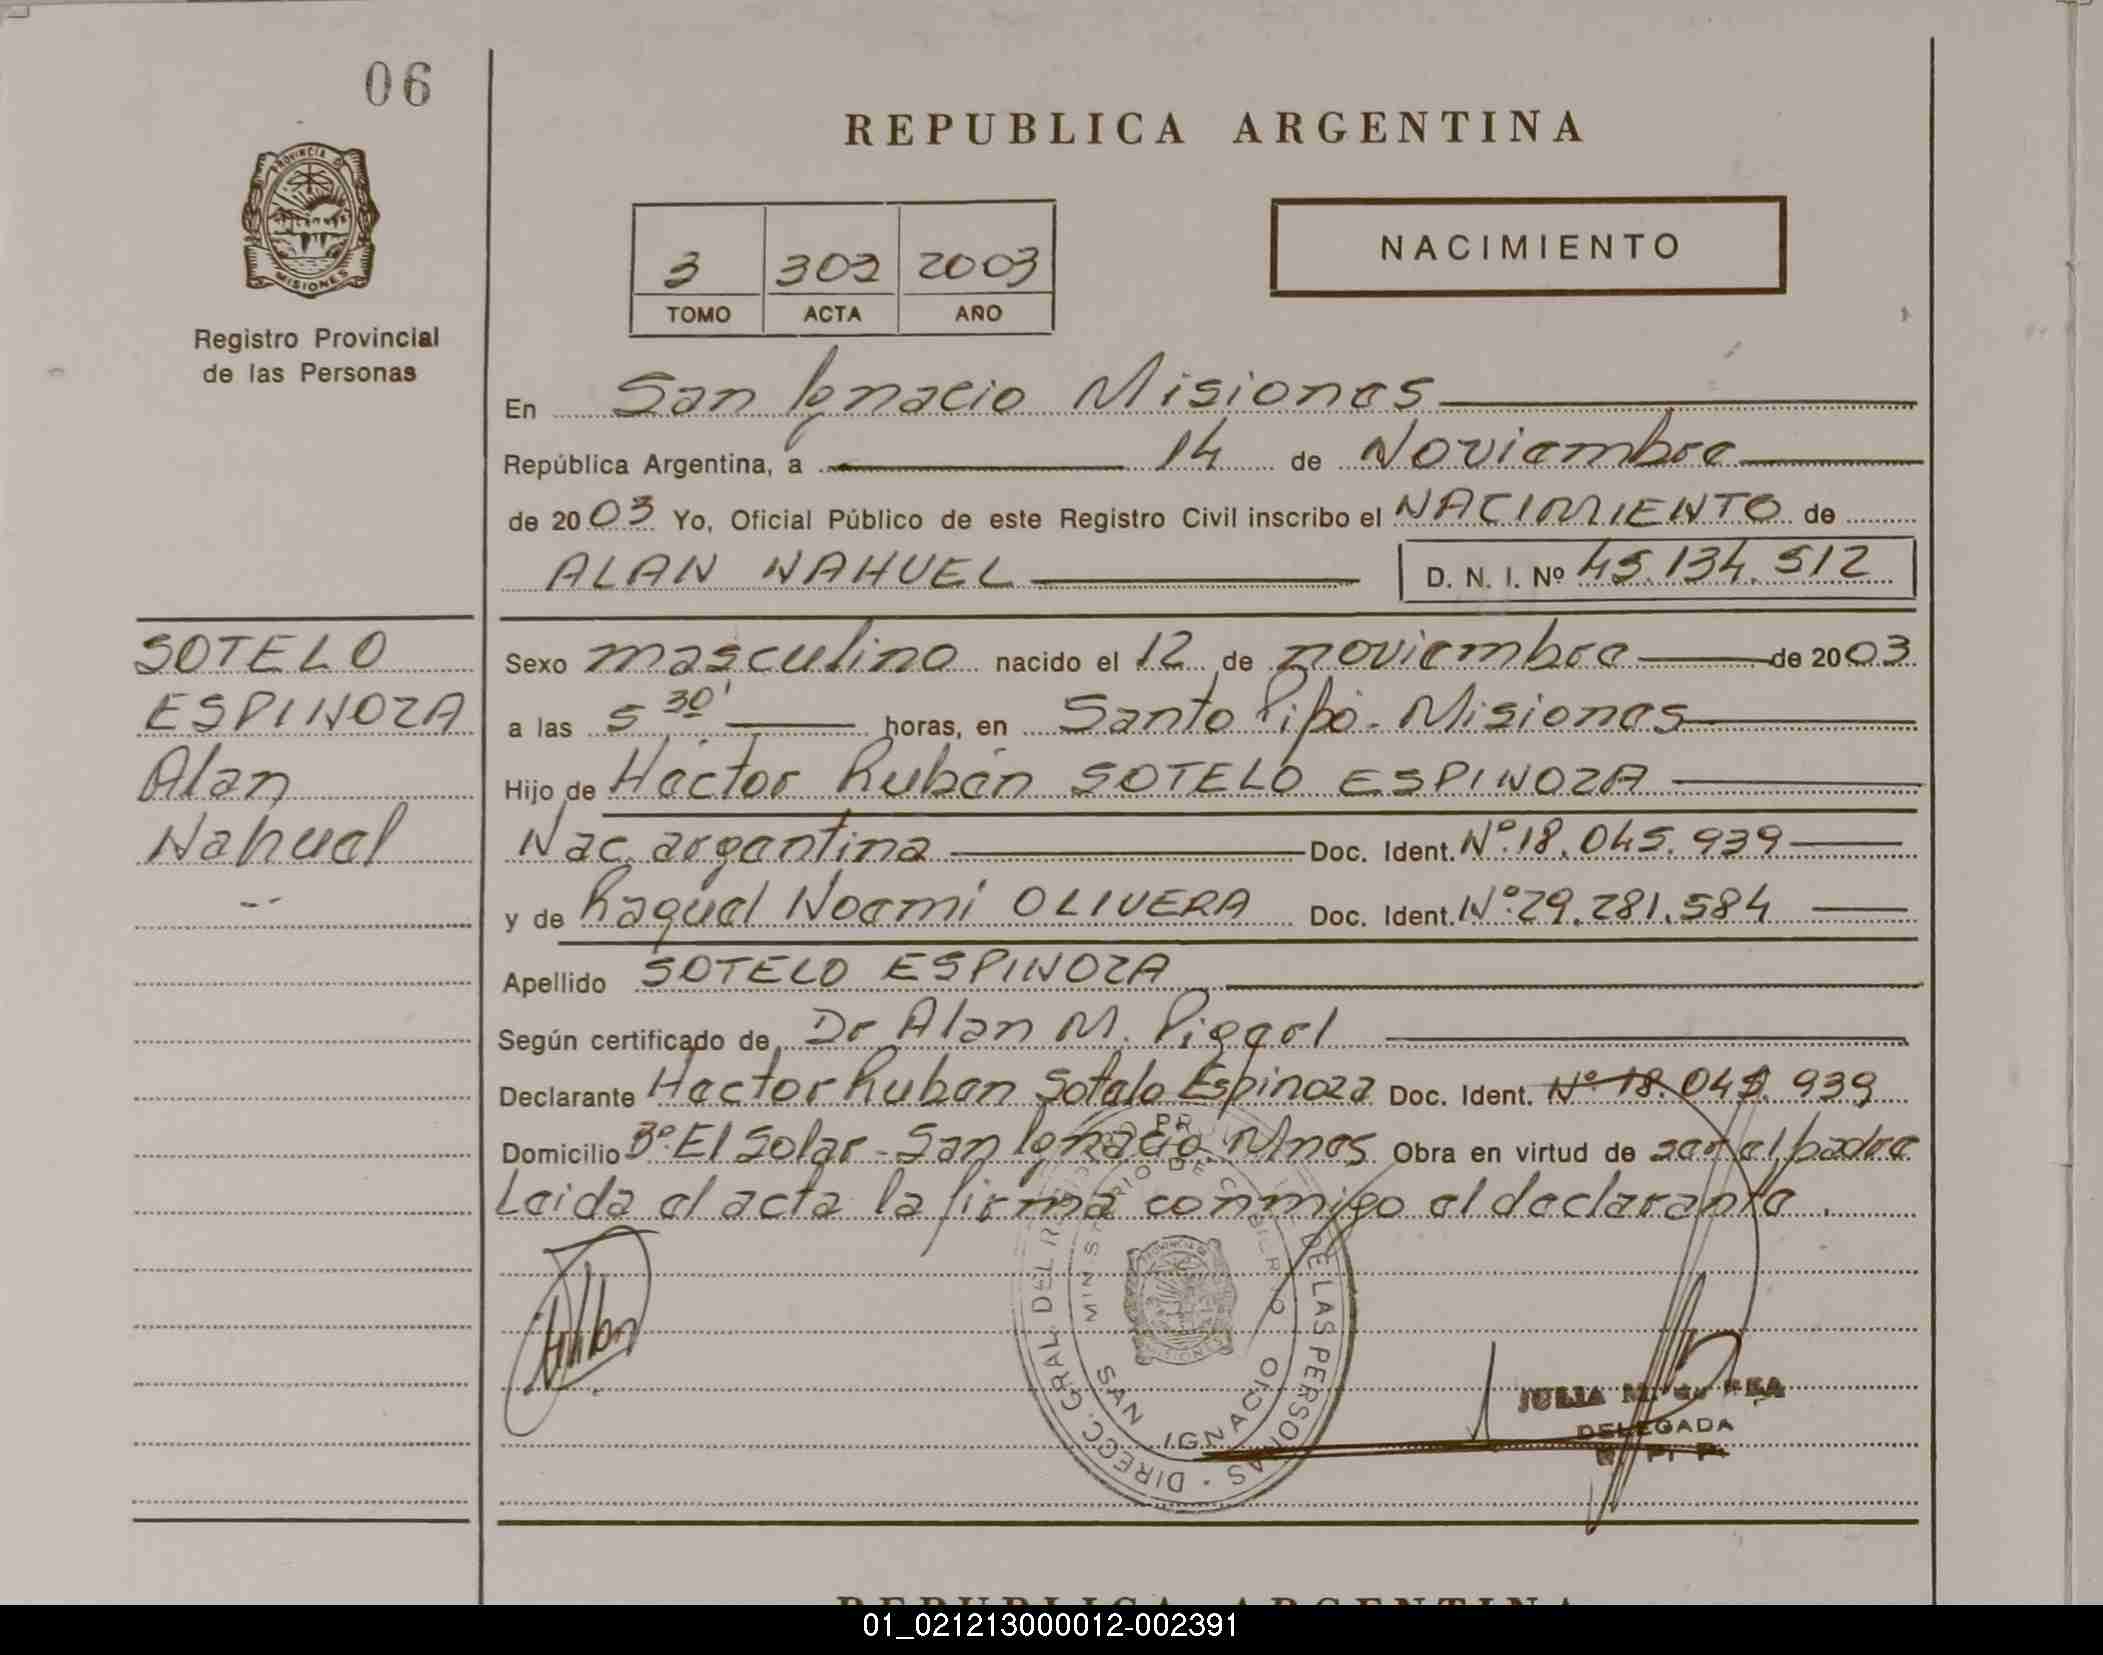 06
REPUBLICA ARGENTINA
PROVINCIA DE MISIONES
Registro Provincial
de las Personas
3 302 2003
TOMO ACTA AÑO
NACIMIENTO
En San Ignacio Misiones
República Argentina, a 14 de Noviembre
de 2003 Yo, Oficial Público de este Registro Civil inscribo el NACIMIENTO de
ALAN NAHUEL D. N. I. Nº 45.134.512
SOTELO
ESPINOZA
Alan
Nahuel
Sexo masculino nacido el 12 de noviembre de 2003
a las 5 30' horas, en Santo Pipó - Misiones
Hijo de Héctor Rubén SOTELO ESPINOZA
Nac. argentina Doc. Ident. Nº 18.045.939
y de Raquel Noemí OLIVERA Doc. Ident. Nº 29.281.584
Apellido SOTELO ESPINOZA
Según certificado de Dr Alan M.
Declarante Hector Ruben Sotelo Espinoza Doc. Ident. Nº 18.045.939
Domicilio Bº El Solar - San Ignacio Mnes Obra en virtud de ser el padre
Leida el acta la firma conmigo el declarante.
DIRECC. GRAL. DEL DE LAS PERSONAS
MINISTERIO DE GOBIERNO
SAN IGNACIO
MISIONES
JULIA
DELEGADA
R. P. P.
REPUBLICA ARGENTINA
01_021213000012-002391